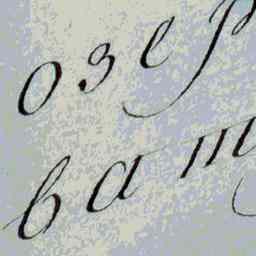 озер
ват